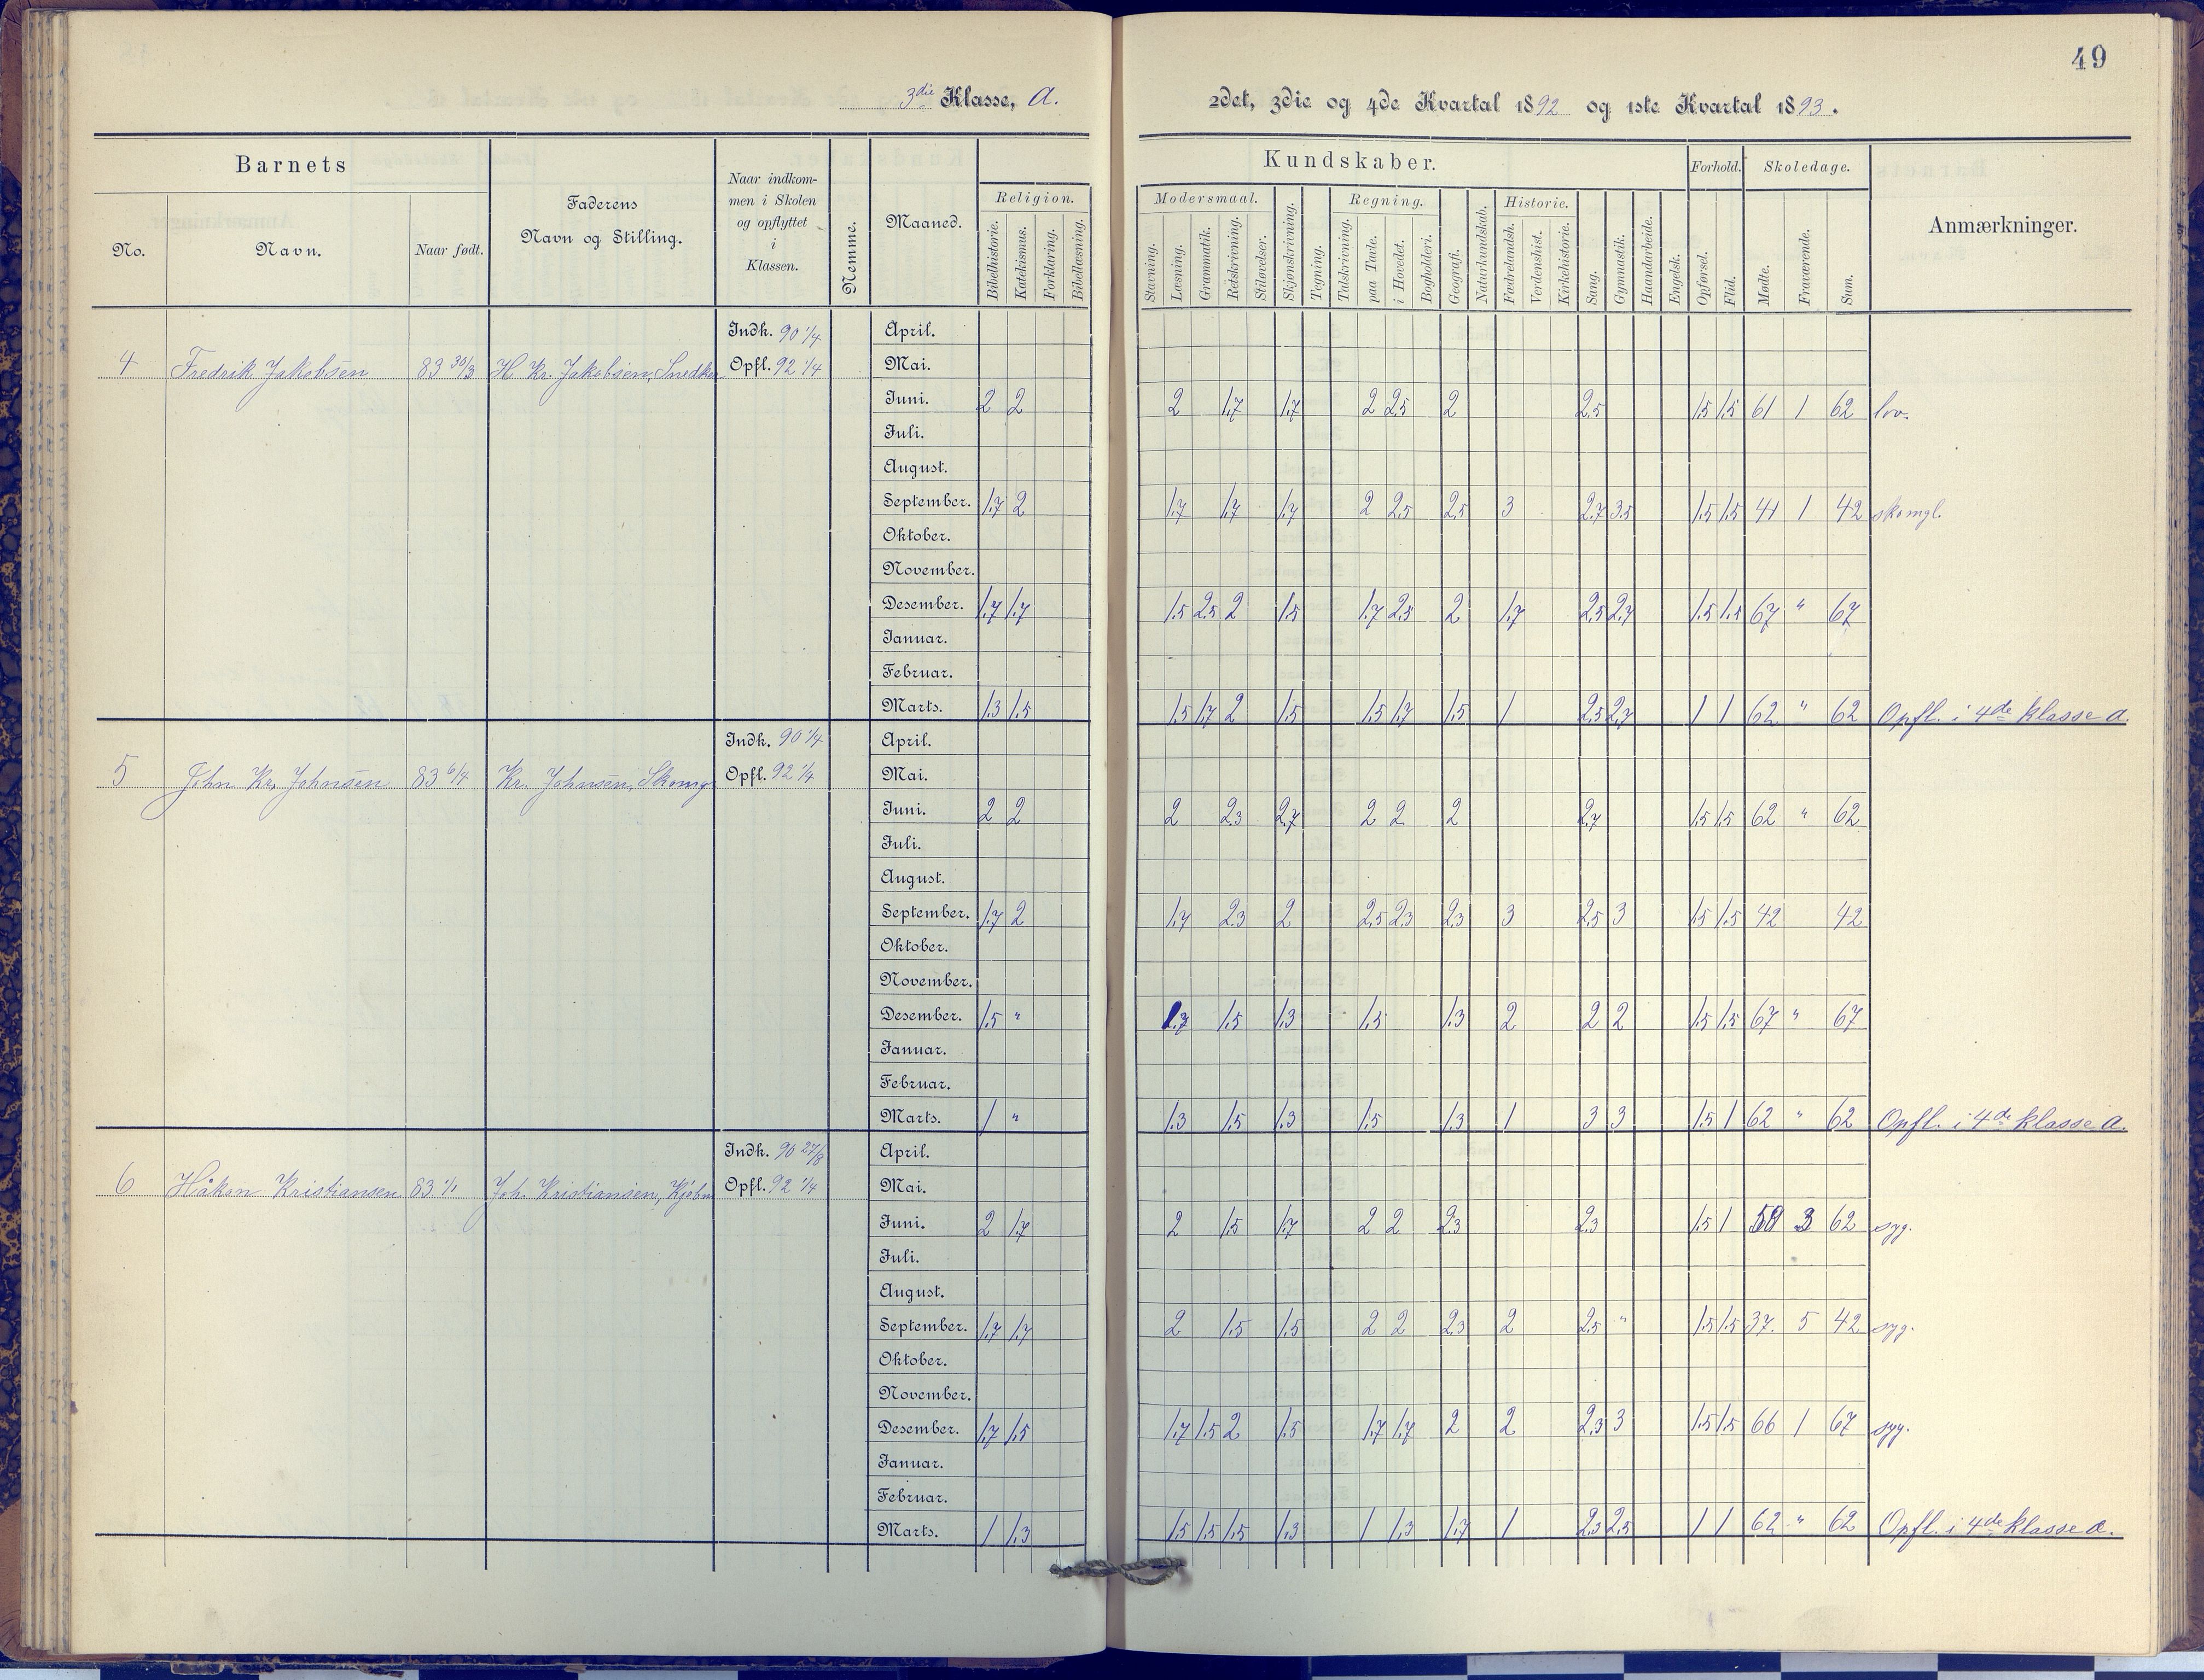 49
3die Klasse, A. 2det, 3die og 4de Kvartal 1892 og 1ste Kvartal 1893.
Barnets Kundskaber. Forhold. Skoledage.
No. Navn. Naar født. Faderens Navn og Stilling. Naar indkommen i Skolen og opflyttet i Klassen. Nemme. Maaned. Religion. Modersmaal. Regning. Historie. Anmærkninger.
Bibelhistorie. Katekismus. Forklaring. Bibellæsning. Stavning. Læsning. Grammatik. Retskrivning. Stiløvelser. Skjønskrivning. Tegning. Talskrivning. paa Tavle. i Hovedet. Bogholderi. Geografi. Naturkundskab. Fædrelandsh. Verdenshist. Kirkehistorie. Sang. Gymnastik. Haandarbeide. Engelsk. Opførsel. Flid. Mødte. Fraværende. Sum.
Indk. 90 1/4 April.
4 Fredrik Jakobsen 83 30/3 H Kr. Jakobsen, Snedker Opfl. 92 1/4 Mai.
Juni. 2 2 2 1.7 1.7 2 2.5 2 2.5 1.5 1.5 61 1 62 lov.
Juli.
August.
September. 1.7 2 1.7 1.7 1.7 2 2.5 2.5 3 2.7 3.5 1.5 1.5 41 1 42 skomgl.
Oktober.
November.
Desember. 1.7 1.7 1.5 2.5 2 1.5 1.7 2.5 2 1.7 2.5 2.7 1.5 1.5 67 " 67
Januar.
Februar.
Marts. 1.3 1.5 1.5 1.7 2 1.5 1.5 1.7 1.5 1 2.5 2.7 1 1 62 " 62 Opfl. i 4de klasse a.
Indk. 90 1/4 April.
5 John Kr. Johnsen 83 6/4 Kr. Johnsen, Skomgr Opfl. 92 1/4 Mai.
Juni. 2 2 2 2.3 2.7 2 2 2 2.7 1.5 1.5 62 " 62
Juli.
August.
September. 1.7 2 1.7 2.3 2 2.5 2.3 2.3 3 2.5 3 1.5 1.5 42 42
Oktober.
November.
Desember. 1.5 " 1.7 1.5 1.3 1.5 1.3 2 2 2 1.5 1.5 67 " 67
Januar.
Februar.
Marts. 1 " 1.3 1.5 1.3 1.5 1.3 1 3 3 1.5 1 62 " 62 Opfl. i 4de klasse A.
Indk. 90 27/8 April.
6 Håkon Kristiansen 83 1/1 Joh. Kristiansen, Kjøbm Opfl. 92 1/4 Mai.
Juni. 2 1.7 2 1.5 1.7 2 2 2.3 2.3 1.5 1 59 3 62 syg.
Juli.
August.
September. 1.7 1.7 2 1.5 1.5 2 2 2.3 2 2.5 " 1.5 1.5 37. 5 42 syg.
Oktober.
November.
Desember. 1.7 1.5 1.7 1.5 2 1.5 1.7 1.7 2 2 2.3 3 1.5 1.5 66 1 67 syg.
Januar.
Februar.
Marts. 1 1.3 1.5 1.5 1.5 1.3 1 1.3 1.7 1 2.3 2.5 1 1 62 " 62 Opfl. i 4de klasse a.